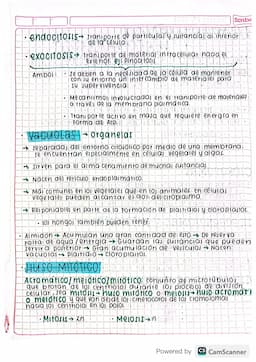 • endocitosis → transporte de partículas y sustancias al interior
de la célula.
• exocitosis → transporte de material intracelular hacia el
exterior
Ambos:
• Se deben a la necesidad de la célula de mantener
con su entorno un intercambio de materiales para
su supervivencia.
• Mecanismos involucrados en el transporte de materiales
a través de la membrana plasmática.
• Transporte activo en masa que requiere energía en
forma de ATP.
Vacuolas → Organelas
→ separadas del entorno citosólico por medio de una membrana
se encuentran especialmente en células vegetales y algas.
→ Sirven para el almacenamiento de muchas sustancias.
→ Nacen del retículo endoplasmático.
→ Más comunes en los vegetales que en los animales en células
vegetales pueden alcanzar el 90% del citoplasma.
→ Responsables en parte de la formación de plastidios y cloroplastos.
• los hongos también pueden tener.
• Almidón → Acumulan una gran cantidad de
falta de agua / energía → Guardan las sustancias que pueden
servir a posterior → Gran acumulación de vesículas → Nacen
vacuolas → Plastidio → Cloroplastos.
Huso Mitótico
Acromático / meiótico / mitótico: conjunto de microtúbulos
que brotan de los centriolos durante los procesos de división
celular, sea mitosis → huso mitótico o meiosis → huso acromático
o meiótico y que van desde los centrómeros de los cromosomas
hasta los centriolos en los polos
• Mitosis → 2n
• Meiosis → n
Powered by CS CamScanner